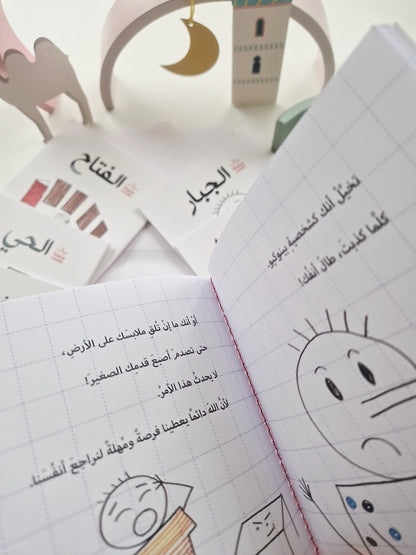 الفتاح
الجبار
الحي
تخيّل أنك كشخصية بينوكيو.
كلّما كذبت، طالَ أنفُك!
أو أنك ما إنْ تُلقِ ملابسَك على الأرض،
حتى تصدمَ أصبعَ قدمك الصغير!
لا يحدثُ هذا الأمرُ.
لأنّ اللهَ دائمًا يعطينا فرصةً ومُهلةً لنراجعَ أنفُسَنا.